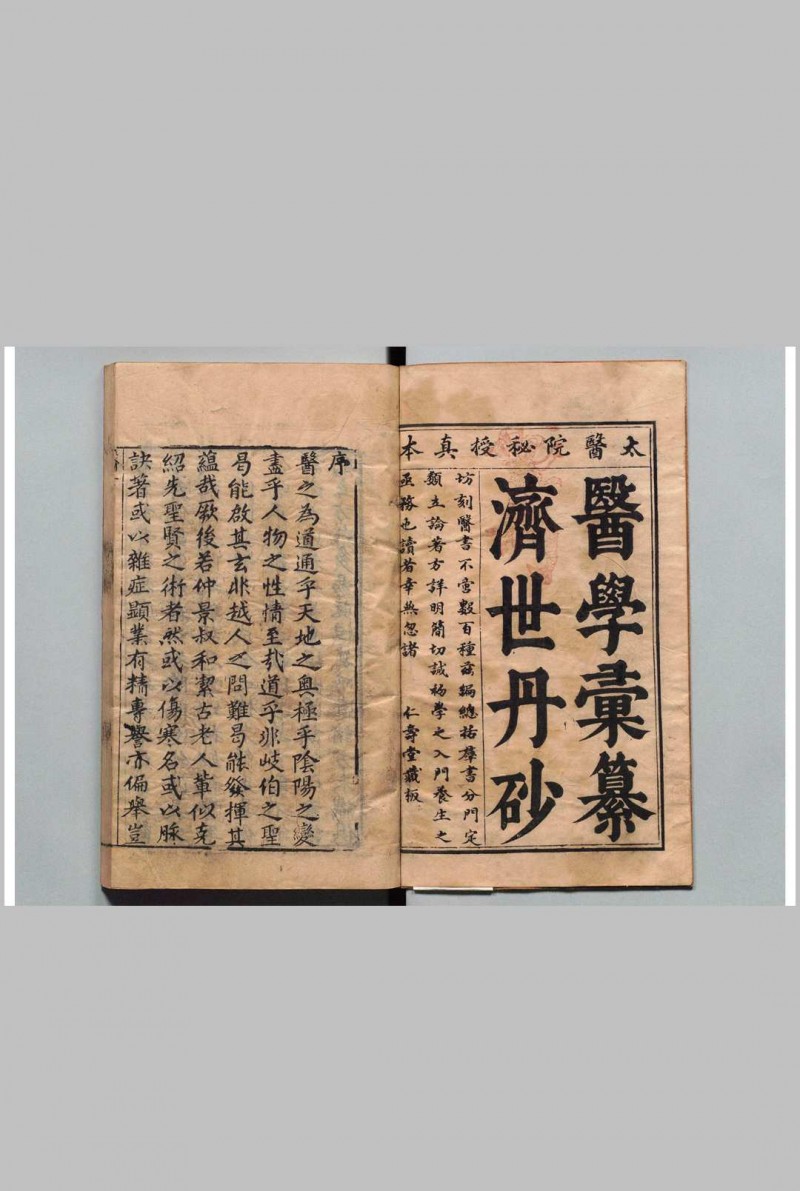 太醫院秘授真本
醫學彙纂
濟世丹砂
坊刻醫書不啻数百種茲編總括羣書分門定
類立論著方詳明簡切誠初學之入門養生之
亟務也讀者幸無忽諸
仁壽堂藏板
序
醫之為道通乎天地之奥極乎陰陽之變
盡乎人物之性情至哉道乎非岐伯之聖
曷能啟其玄非越人之問難曷能發揮其
蘊哉厥後若仲景叔和潔古老人輩似克
紹先聖賢之術者然或以傷寒名或以脉
訣著或以雜症顕業有精專譽亦偏舉豈